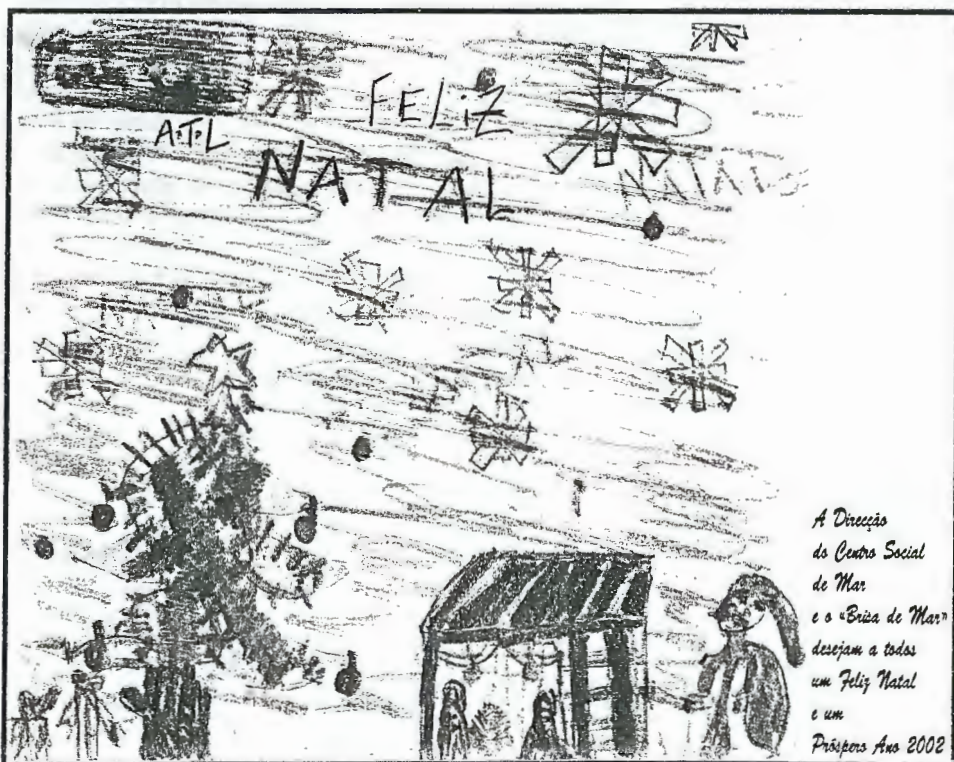 FELiZ
A.T.L
NATAL
NATAL
A Direcção
do Centro Social
de Mar
e o «Brisa de Mar»
desejam a todos
um Feliz Natal
e um
Próspero Ano 2002